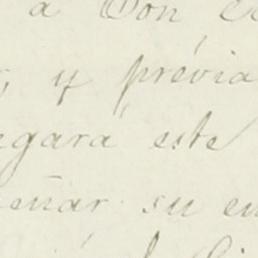 a Don
y prévia
egará este
eñar su en